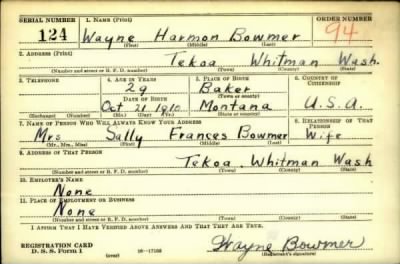 SERIAL NUMBER 1. NAME (Print) ORDER NUMBER
124 Wayne Harmon Bowmer 94
(First) (Middle) (Last)
2. ADDRESS (Print)
Tekoa Whitman Wash.
(Number and street or R. F. D. number) (Town) (County) (State)
3. TELEPHONE 4. AGE IN YEARS 5. PLACE OF BIRTH 6. COUNTRY OF CITIZENSHIP
29 Baker
DATE OF BIRTH (Town or county)
Oct 21 1910 Montana U.S.A.
(Exchange) (Number) (Mo.) (Day) (Yr.) (State or country)
7. NAME OF PERSON WHO WILL ALWAYS KNOW YOUR ADDRESS 8. RELATIONSHIP OF THAT PERSON
Mrs Sally Frances Bowmer Wife
(Mr., Mrs., Miss) (First) (Middle) (Last)
9. ADDRESS OF THAT PERSON
Tekoa, Whitman Wash
(Number and street or R. F. D. number) (Town) (County) (State)
10. EMPLOYER'S NAME
None
11. PLACE OF EMPLOYMENT OR BUSINESS
None
(Number and street or R. F. D. number) (Town) (County) (State)
I AFFIRM THAT I HAVE VERIFIED ABOVE ANSWERS AND THAT THEY ARE TRUE.
REGISTRATION CARD
D. S. S. FORM 1 (over) 16—17105 Wayne Bowmer
(Registrant's signature)